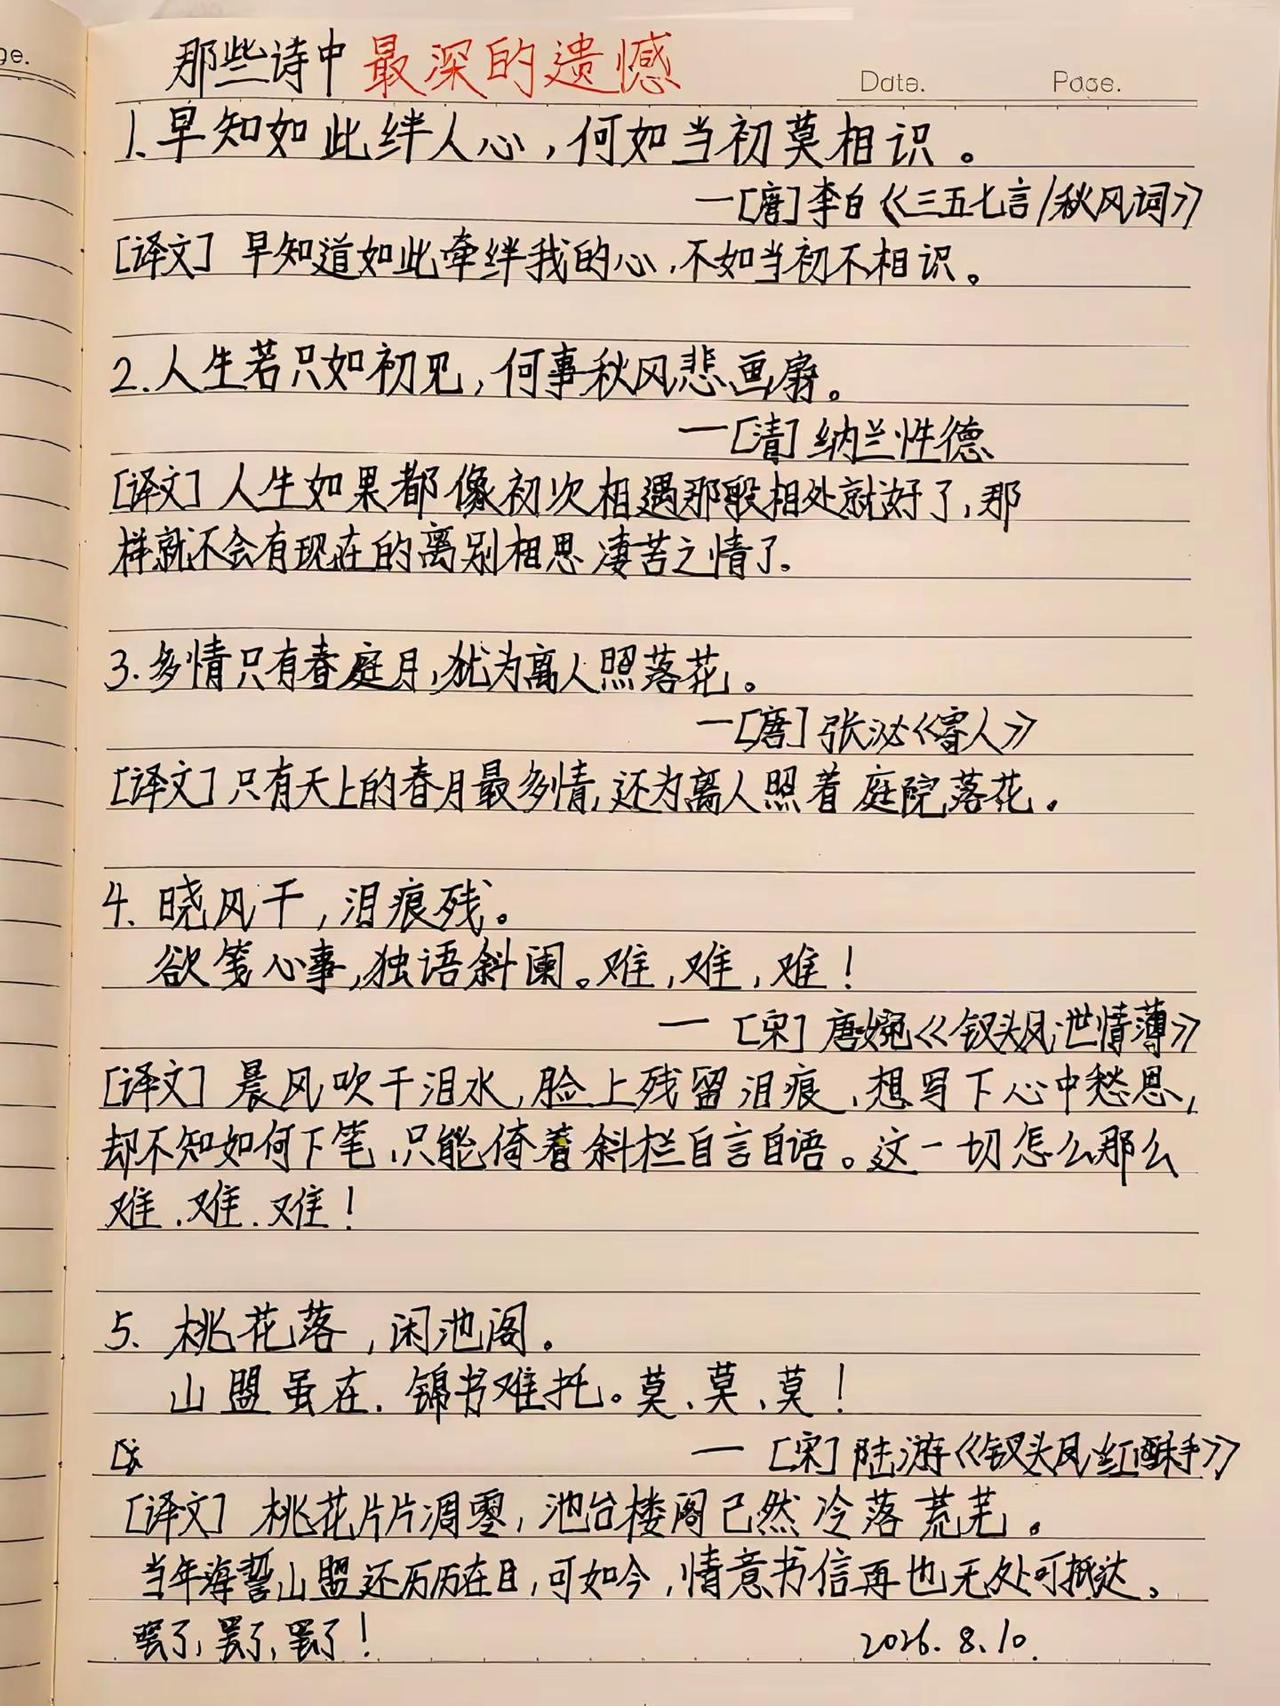 ge.
那些诗中最深的遗憾
Date. Page.
1.早知如此绊人心，何如当初莫相识。
—[唐]李白《三五七言/秋风词》
[译文]早知道如此牵绊我的心，不如当初不相识。
2.人生若只如初见，何事秋风悲画扇。
—[清]纳兰性德
[译文]人生如果都像初次相遇那段相处就好了，那
样就不会有现在的离别相思凄苦之情了。
3.多情只有春庭月，犹为离人照落花。
—[唐]张泌《寄人》
[译文]只有天上的春月最多情，还为离人照着庭院落花。
4.晓风干，泪痕残。
欲笺心事，独语斜阑。难，难，难！
—[宋]唐婉《钗头凤·世情薄》
[译文]晨风吹干泪水，脸上残留泪痕，想写下心中愁思，
却不知如何下笔，只能倚着斜栏自言自语。这一切怎么那么
难、难、难！
5.桃花落，闲池阁。
山盟虽在，锦书难托。莫、莫、莫！
—[宋]陆游《钗头凤·红酥手》
[译文]桃花片片凋零，池台楼阁已然冷落荒芜。
当年海誓山盟还历历在目，可如今，情意书信再也无处可抵达。
罢了，罢了，罢了！
2026.8.10.